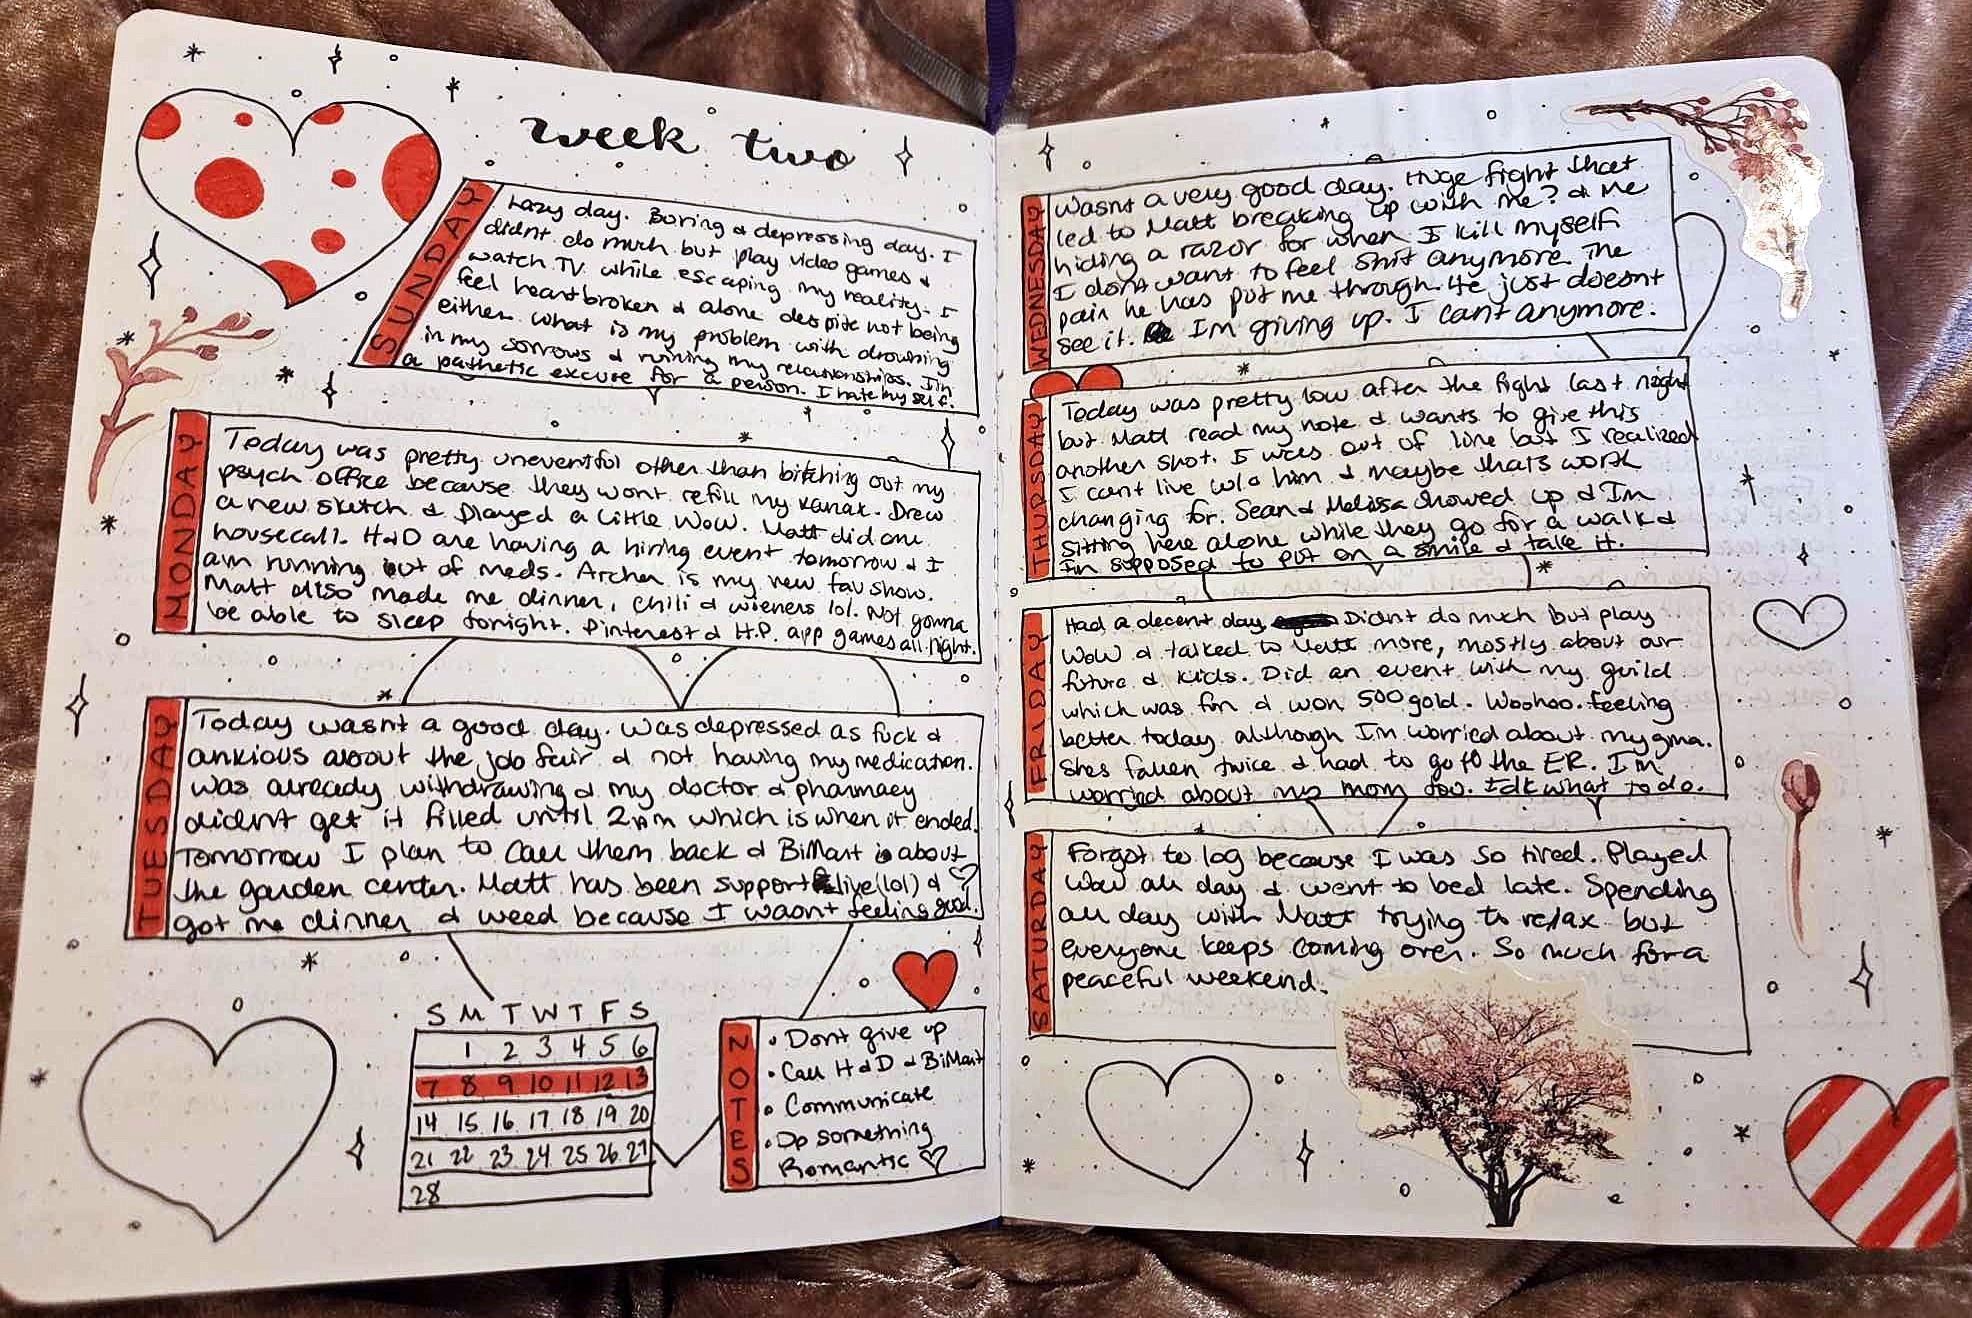 week two
SUNDAY
Lazy day. Boring & depressing day. I
didnt do much but play video games &
watch TV while escaping my reality. I
feel heartbroken & alone despite not being
either. What is my problem with drowning
in my sorrows & ruining my relationships. I'm
a pathetic excuse for a person. I hate my self.
MONDAY
Today was pretty uneventful other than bitching out my
psych office because they wont refill my xanax. Drew
a new sketch & Played a little WoW. Matt did one
housecall. H&D are having a hiring event tomorrow & I
am running out of meds. Archer is my new fav show.
Matt also made me dinner, chili & wieners lol. Not gonna
be able to sleep tonight. Pinterest & H.P. app games all night.
TUESDAY
Today wasnt a good day. Was depressed as fuck &
anxious about the job fair & not having my medication.
Was already withdrawing & my doctor & pharmacy
didnt get it filled until 2pm which is when it ended.
Tomorrow I plan to call them back & BiMart is about
the garden center. Matt has been support live (lol) & ♡
got me dinner & weed because I wasnt feeling good.
S M T W T F S
1 2 3 4 5 6
7 8 9 10 11 12 13
14 15 16 17 18 19 20
21 22 23 24 25 26 27
28
NOTES
• Dont give up
• Call H&D & BiMart
• Communicate
• Do something
Romantic ♡
WEDNESDAY
Wasnt a very good day. Huge fight that
led to Matt breaking up with me? & Me
hiding a razor for when I kill myself
I dont want to feel shit anymore. The
pain he has put me through. He just doesnt
see it. Im giving up. I cant anymore.
THURSDAY
Today was pretty low after the fight last night
but Matt read my note & wants to give this
another shot. I was out of line but I realized
I cant live w/o him & maybe thats worth
changing for. Sean & Melissa showed up & Im
sitting here alone while they go for a walk &
Im supposed to put on a smile & take it.
FRIDAY
Had a decent day. Didnt do much but play
WoW & talked to Matt more, mostly about our
future & kids. Did an event with my guild
which was fun & won 500 gold. Woohoo. Feeling
better today although Im worried about my gma.
Shes fallen twice & had to go to the ER. I'm
worried about my mom too. Idk what to do.
SATURDAY
Forgot to log because I was so tired. Played
WoW all day & went to bed late. Spending
all day with Matt trying to relax but
everyone keeps coming over. So much for a
peaceful weekend.